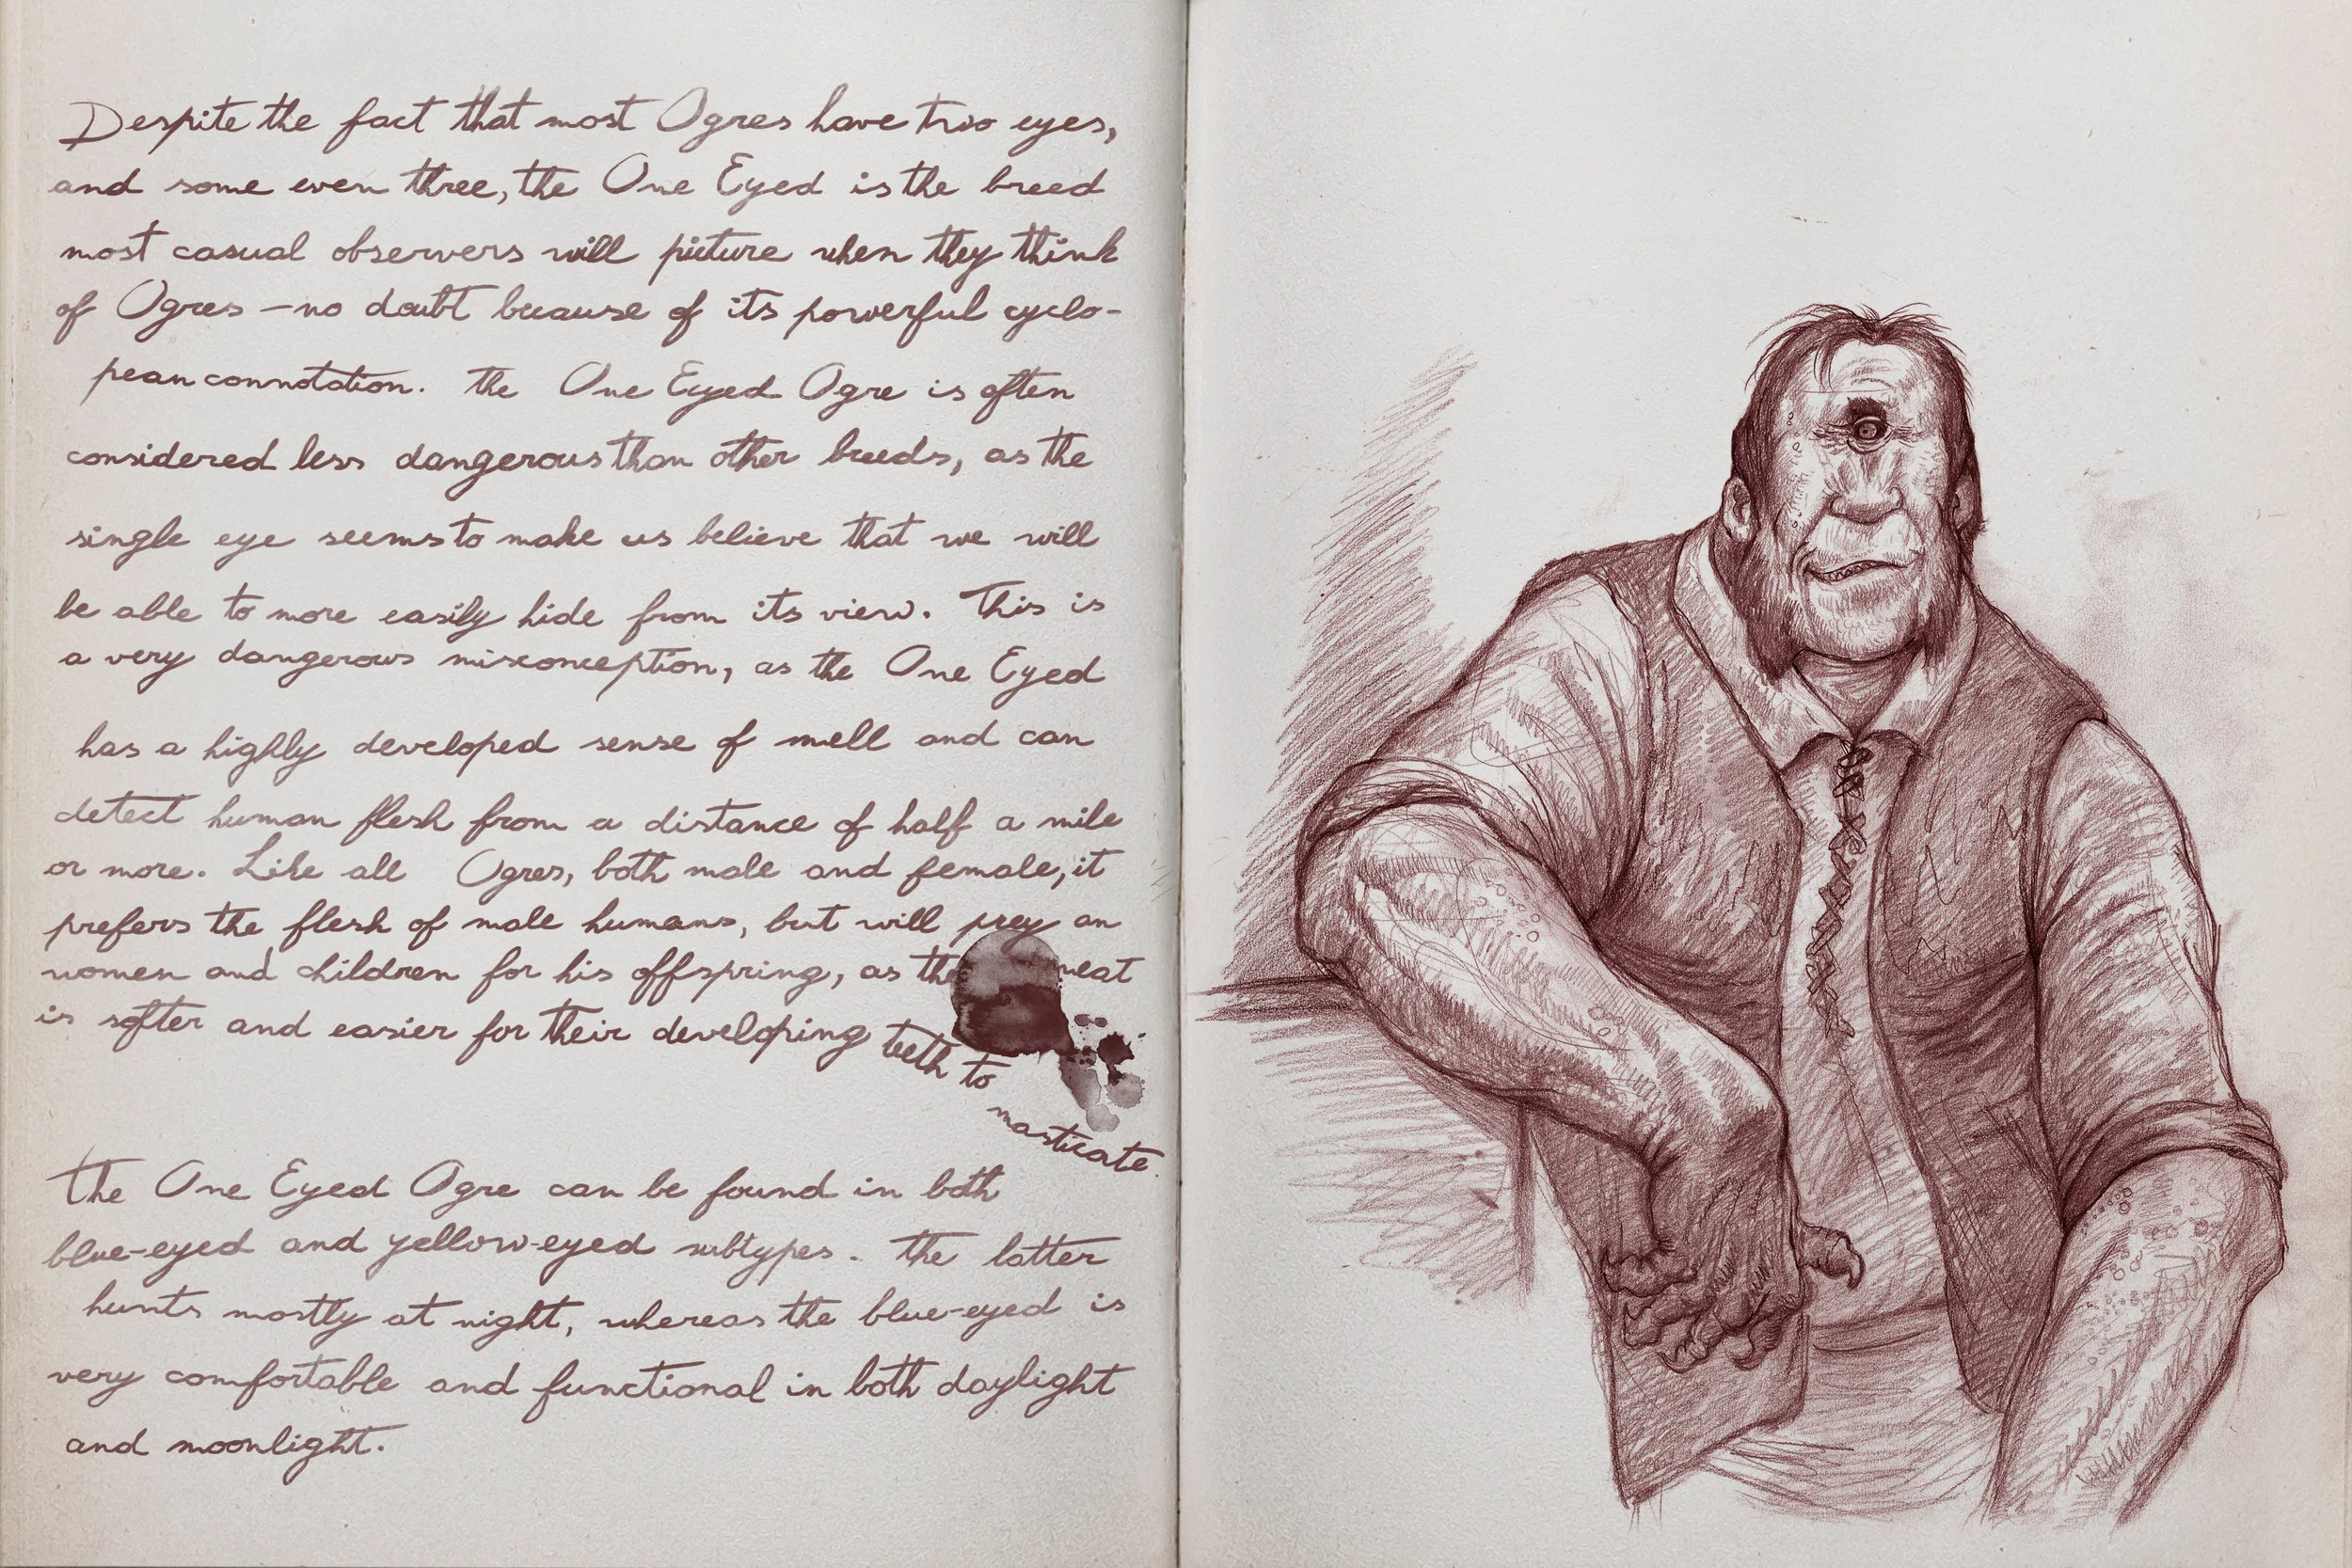 Despite the fact that most Ogres have two eyes,
and some even three, the One Eyed is the breed
most casual observers will picture when they think
of Ogres – no doubt because of its powerful cyclo-
pean connotation. The One Eyed Ogre is often
considered less dangerous than other breeds, as the
single eye seems to make us believe that we will
be able to more easily hide from its view. This is
a very dangerous misconception, as the One Eyed
has a highly developed sense of smell and can
detect human flesh from a distance of half a mile
or more. Like all Ogres, both male and female, it
prefers the flesh of male humans, but will prey on
women and children for his offspring, as the meat
is softer and easier for their developing teeth to
masticate.
The One Eyed Ogre can be found in both
blue-eyed and yellow-eyed subtypes. The latter
hunts mostly at night, whereas the blue-eyed is
very comfortable and functional in both daylight
and moonlight.